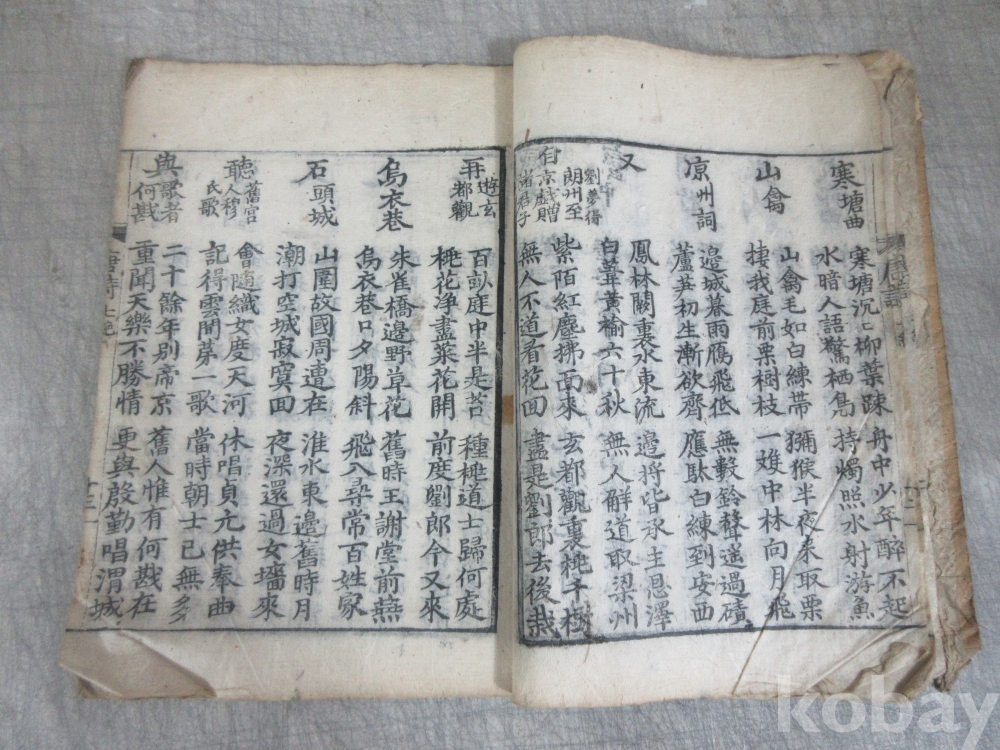 寒塘曲
寒塘沉〻柳葉踈
水暗人語驚栖鳥
舟中少年醉不起
持燭照水射游魚
山禽
山禽毛如白練帶
捿我庭前栗樹枝
獼猴半夜來取栗
一䨇中林向月飛
凉州詞
邊城暮雨鴈飛低
蘆芛初生漸欲齊
無數鈴聲遥過磧
應馱白練到安西
又
鳳林關裏水東流
白草黃榆六十秋
邊將皆承主恩澤
無人觧道取梁州
劉夢得
朗州至
自京戯贈
諸君子
紫陌紅塵拂面來
無人不道看花囬
玄都觀裏桃千樹
盡是劉郎去後栽
再遊玄
都觀
百畝庭中半是苔
桃花净盡菜花開
種桃道士歸何處
前度劉郎今又來
烏衣巷
朱雀橋邊野草花
烏衣巷口夕陽斜
舊時王謝堂前燕
飛入尋常百姓家
石頭城
山圍故國周遭在
潮打空城寂寞囬
淮水東邊舊時月
夜深還過女墻來
聽舊宮
人穆
氏歌
曾随織女度天河
記得雲間苐一歌
休唱貞元供奉曲
當時朝士已無多
與謌者
何戡
二十餘年别帝京
重聞天樂不勝情
舊人惟有何戡在
更與慇勤唱渭城
唐詩七絶
kobay